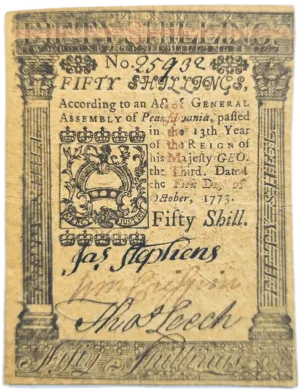 FIFTY SHILLINGS.
No. 25932
FIFTY SHILLINGS,
According to an Act of GENERAL
ASSEMBLY of Pennsylvania, passed
in the 13th Year
of the REIGN of
his Majesty GEO.
the Third. Dated
the First Day of
October, 1773.
Fifty Shill.
Jas Stephens
Thos Leech
Fifty Shillings